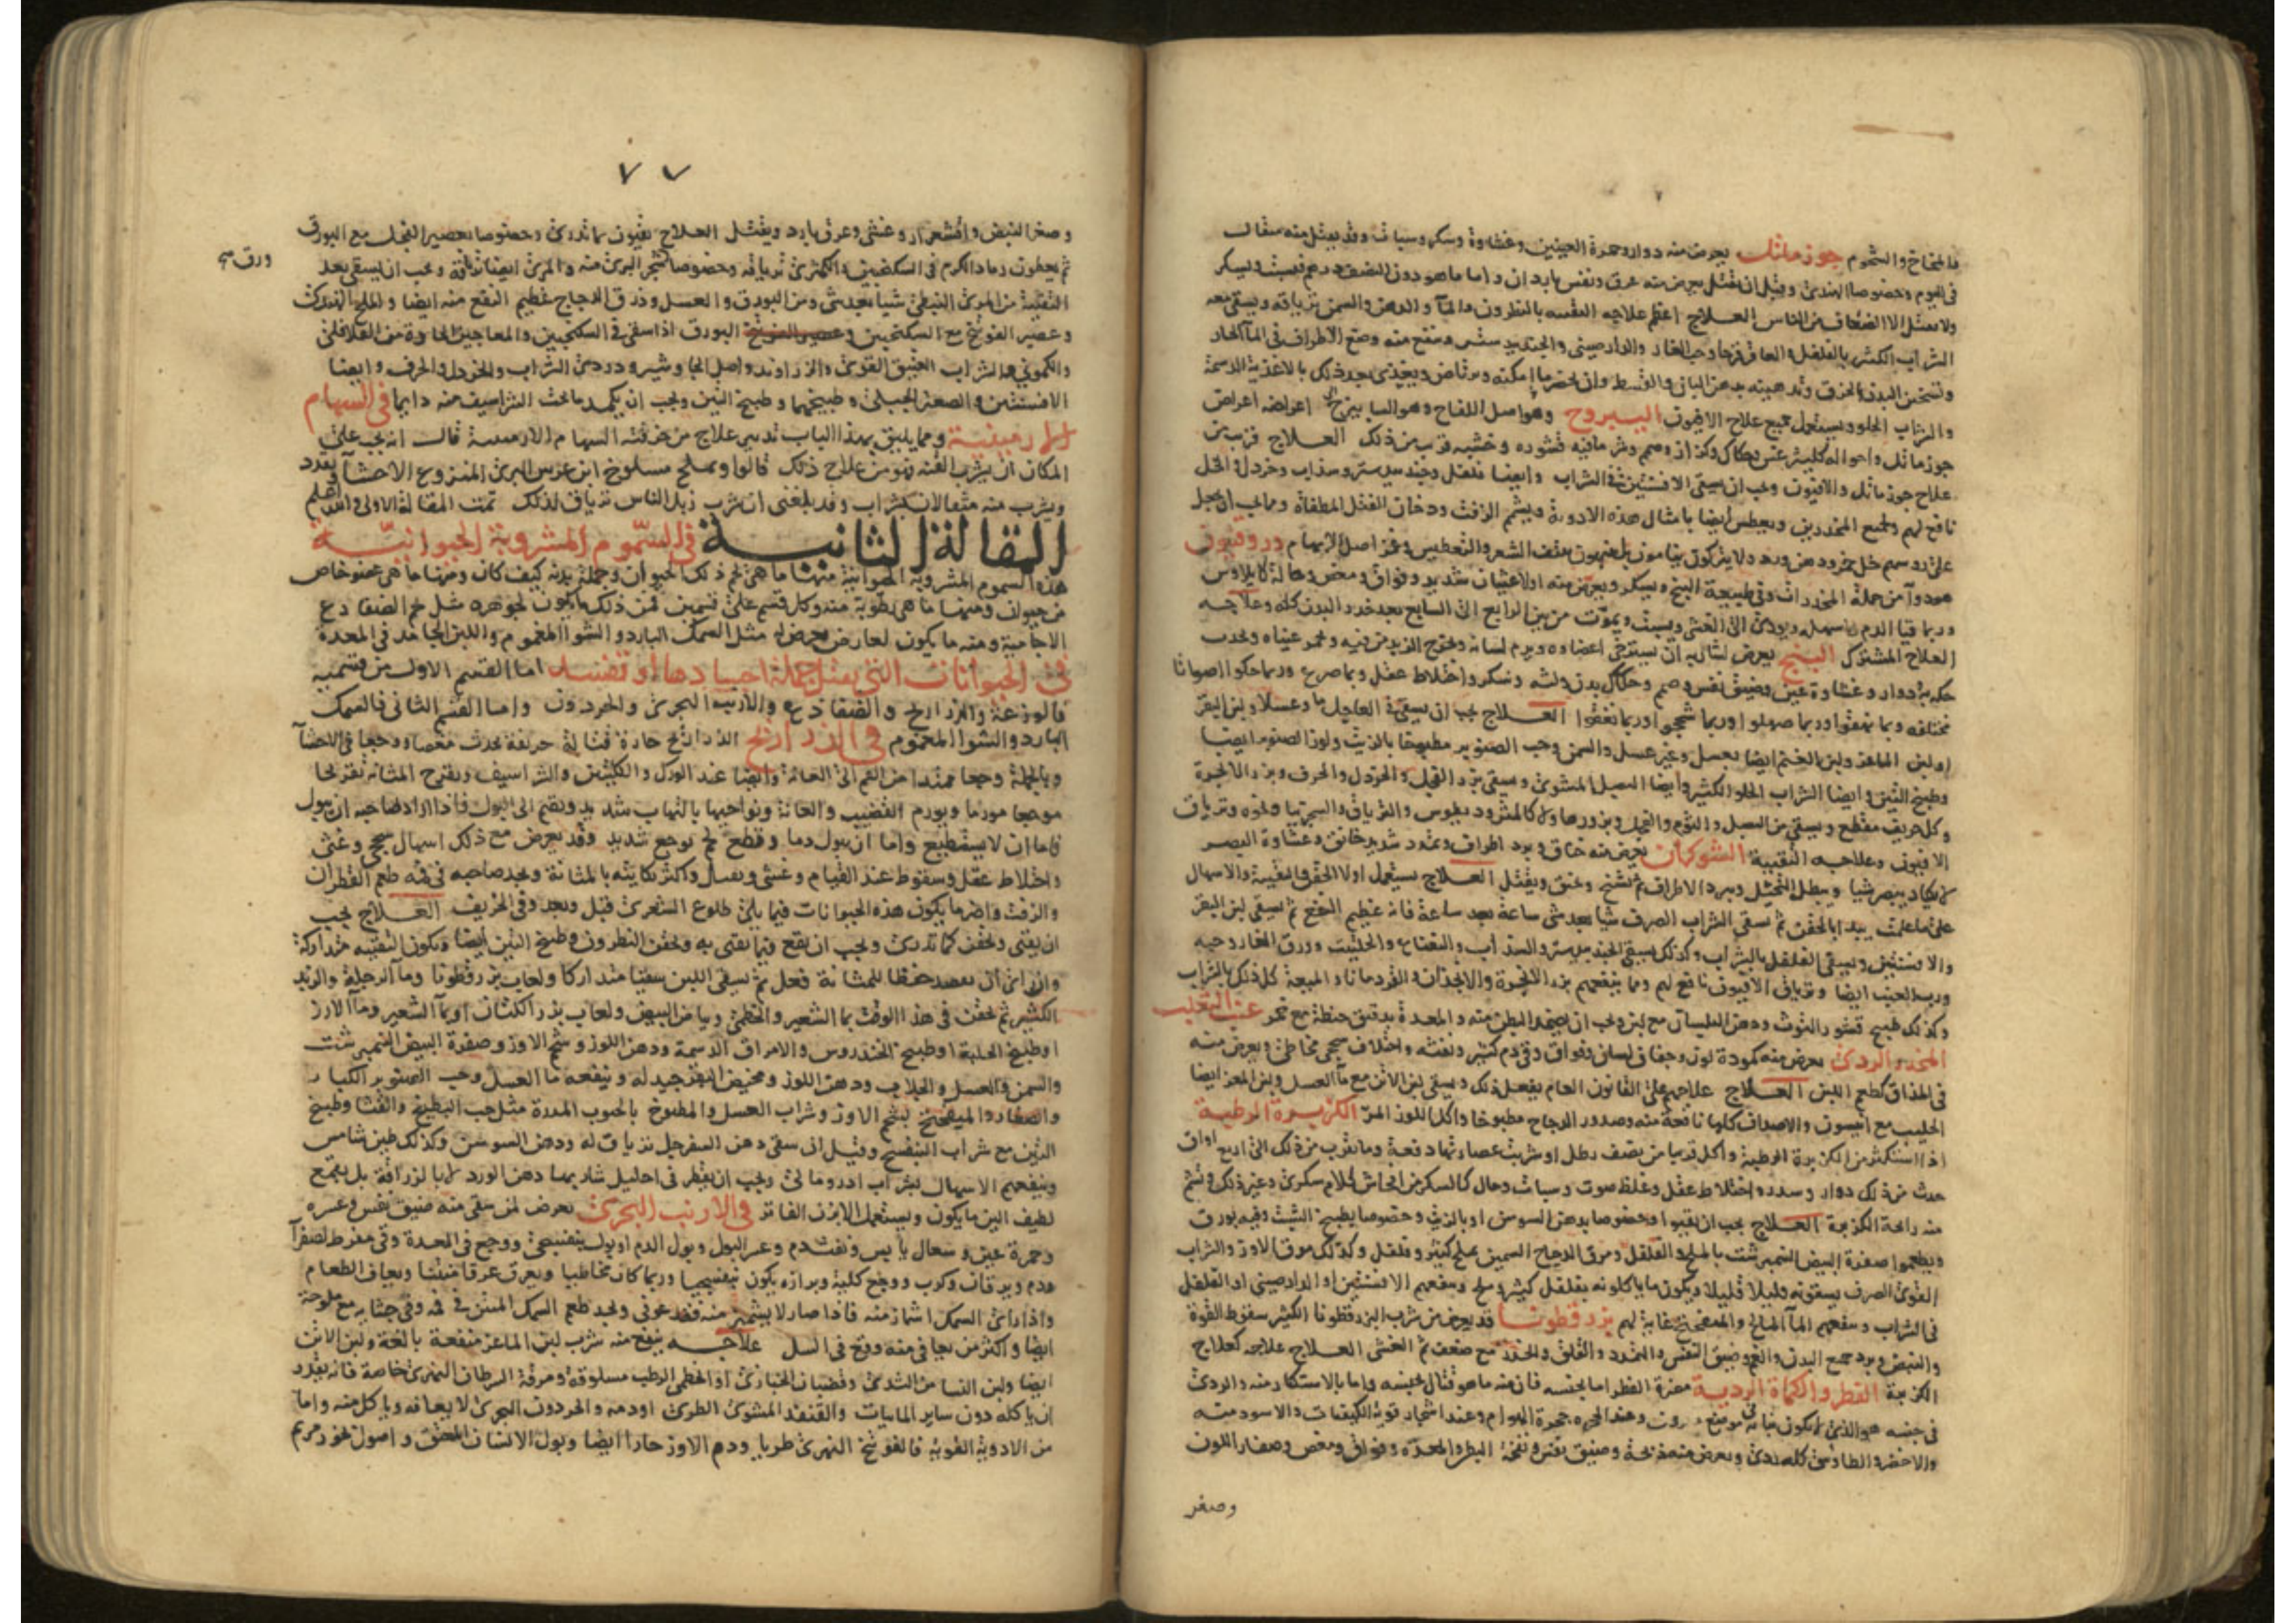 جوز ماثل يعرض منه دوار وحمرة العينين وغشاوة وسكر وسبات وقد يقتل منه مثقال
في اليوم وخصوصا الهندي وقبل ان يقتل يعرض منه عرق ونفس بارد ان واما ما هو دون النصف درهم فيسبت ويسكر
ولا يقتل الا الضعاف من الناس العلاج اعظم علاجه التقيئه بالنطرون والماء والدهن والسمن ترياقه ويسقى بعده
الشراب الكثير بالفلفل والعاقرقرحا وحب الغار والدارصيني والجندبيدستر وينفع منه وضع الاطراف في الماء الحار
وتسخين البدن بالخرق وتدهينه بدهن البان والقسط وان يحضر ما امكنه ويرتاض ويغتذى بعد ذلك بالاغذية الدسمة
والشراب الحلو ويستعمل جميع علاج الافيون اليبروح وهو اصل اللفاح اعراضه اعراض
جوز ماثل قشوره وخشبه قريب من ذلك العلاج قريب من
علاج جوز ماثل والافيون ويجب ان يسقى الافسنتين في الشراب وايضا فلفل وجندبيدستر وسذاب وخردل والخل
نافع لهم ولجميع المخدرين ويعطس ايضا بامثال هذه الادوية ويشم الزفت ودخان الفتل المطفأة
على روسهم خل خمر ودهن ورد ولا يتركون ينامون بنتف الشعر والتعطيس وغمز اصل الابهام دروقنيون
هو دواء من جملة المخدرات وفي طبيعة البنج ويسكر ويعرض منه اولا غثيان شديد وفواق ومغص
وربما قيأ الدم ويموت من بين الرابع الى السابع بعد خدر البدن كله وعلاجه
العلاج المشترك البنج يعرض لشاربه ان يسترخى اعضاوه ويرم لسانه ويخرج الزبد من فيه وتحمر عيناه ويحدث
دوار وغشاوة عين وضيق نفس وصمم وحكاك بدن ولثه وسكر واختلاط عقل وربما صرع وربما حكوا اصواتا
مختلفه وربما نهقوا وربما صهلوا وربما شحجوا وربما نعقوا العلاج يجب ان يسقى في العاجل ماء وعسلا ولبن البقر
او لبن الماعز ولبن الغنم ايضا بعسل وغير عسل والسمن وحب الصنوبر مطبوخا بالزيت ولوز الصنوبر ايضا
وطبيخ التين وايضا الشراب الحلو الكثير وايضا البصل المشوي ويسقى بزر الفجل والخردل والحرف وبزر الانجرة
وكل حريف مقطع ويسقى من البصل والثوم والفجل وبزورها والترياق والسجرنيا ونحوه وترياق
الافيون وعلاجه التقيية الشوكران يعرض منه خناق وبرد اطراف وتمدد شديد خانق وغشاوة البصر
لا يكاد يبصر شيا ويبطل التخيل ويبرد الاطراف ثم تشنج وخنق ويقتل العلاج يستعمل اولا الحقن والتقيية والاسهال
يبدا بالحقن ثم يسقى الشراب الصرف شيا بعد شى ساعة بعد ساعة فانه عظيم النفع ثم يسقى لبن البقر
والافسنتين ويسقى الفلفل بالشراب وكذلك يسقى الجندبيدستر والسذاب والنعناع والحلتيت وورق الغار وحبه
ورب العنب ايضا وترياق الافيون نافع لهم ومما ينفعهم بزر الانجرة والانجذان والقردمانا والميعة كل ذلك بالشراب
وكذلك طبيخ قشور التوث ودهن البلسان مع لبن ويجب ان يضمد البطن منه والمعدة بدقيق حنطة مع خمر عنب الثعلب
المخدر الردي يعرض منه كمودة لون وجفاف لسان وفواق وقي دم كثير ونفثه واختلاف سحجي مخاطي ويعرض منه
في المذاق كطعم اللبن العلاج علاجهم على القانون العام يفعل ذلك ويسقى لبن الاتن مع ماء العسل ولبن المعز ايضا
الحليب مع انيسون والاصداف كلها نافعة منه وصدور الدجاج مطبوخا واكل اللوز المر الكزبرة الرطبة
اذا استكثر من الكزبرة الرطبة واكل قريبا من نصف رطل او شربت عصارتها دفعة وما يقرب من ذلك الى اربع اواق
حدث من ذلك دوار وسدر واختلاط عقل وغلظ صوت وسبات وحال كالسكر من افحاش كلام سكري وغير ذلك ويشم
منه رائحة الكزبرة العلاج يجب ان يقيوا وخصوصا بدهن السوسن او بالزيت وخصوصا بطبيخ الشبث وفيه بورق
ويطعموا صفرة البيض النمبرشت بالملح والفلفل ومرق الدجاج السمين بملح كثير وفلفل وكذلك مرق الاوز والشراب
القوى الصرف يسقونه قليلا قليلا ويكون ما ياكلونه بفلفل كثير وملح وينفعهم الافسنتين او الدارصيني او الفلفل
في الشراب وينفعهم الماء المالح والميفختج غاية لهم بزر قطونا قد يعرض من شرب البزرقطونا الكثير سقوط القوة
والنبض وبرد جميع البدن والغم وضيق النفس والتمدد والقلق والخدر مع ضعف ثم الغشى العلاج علاجه كعلاج
الكزبرة الفطر والكماة الردية مضرة الفطر اما بجنسه فان منه ما هو قتال بجنسه واما بالاستكثار منه والردي
في جنسه هو الذي يكون نباته في موضع وعند اشجار قوية الكيفيات والاسود منه
والاخضر والطاوسي كله ردي ويعرض منه ذبحة وضيق نفس ونفخة البطن والمعدة وفواق ومغص وصفار اللون
وصغر
٧٧
وصغر النبض واقشعرار وغشى وعرق بارد ويقتل العلاج يقيون بما تدري وخصوصا بعصير الفجل مع البورق
ورق صح
ثم يعطون رماد الكرم في السكنجبين والكمثرى ترياقه وخصوصا شجر البري منه والمري ايضا ترياقه ويجب ان يسقى بعد
التقيئة من المري النبطي شيا بعد شى ومن البورق والعسل وذرق الدجاج عظيم النفع منه ايضا والملح
وعصير الفوتنج مع السكنجبين البورق اذا سقى في السكنجبين والمعاجين الحارة من الفلافلي
والكموني والشراب العتيق القوي والزراوند واصل الجاوشير ودردي الشراب والخردل والحرف وايضا
الافسنتين والصعتر الجبلي وطبيخهما وطبيخ التين ويجب ان يكمد ما تحت الشراسيف منه دايما في السهام
الارمينية ومما يليق بهذا الباب تدبير علاج من خرقته السهام الارمينية قالت انه يجب على
المكان ان يشرب القنه فهو من علاج ذلك قالوا ومملح مسلوخ ابن عرس البري المنزوع الاحشاء يقدد
ويشرب منه مثقالان بشراب وقد بلغني ان شرب زبل الناس ترياق لذلك تمت المقالة الاولى والله اعلم
المقالة الثانية في السموم المشروبة الحيوانية
هذه السموم المشروبة الحيوانية منها ما هي لحم ذلك الحيوان وجملة بدنه كيف كان ومنها ما هي عضو خاص
من حيوان ومنها ما هي رطوبة منه وكل قسم على قسمين فمن ذلك ما يكون لجوهره مثل لحم الضفادع
الاجامية ومنه ما يكون لعارض يعرض له مثل السمك البارد والشوا المغموم واللبن الجامد في المعدة
في الحيوانات التي يقتل جملة اجسادها او تفسد اما القسم الاول من قسميه
فالوزغة والذراريح والضفادع والارنب البحري والحردون واما القسم الثاني فالسمك
البارد والشوا المغموم في الذراريح الذراريح حادة قتالة حريفة تحدث مغصا ووجعا في الاحشاء
وبالجملة وجعا ممتدا من الفم الى العانة وايضا عند الورك والكليتين والشراسيف ويقرح المثانة تقريحا
موجعا مورما ويورم القضيب والعانة ونواحيها بالتهاب شديد ويقيم الى البول فاذا اراد صاحبه ان يبول
فاما ان لا يستطيع واما ان يبول دما وقطع لحم بوجع شديد وقد يعرض مع ذلك اسهال سحجي وغشى
واختلاط عقل وسقوط عند القيام وغشى واكثر نكايته بالمثانة ويجد صاحبه في فمه طعم القطران
والزفت واضر ما يكون هذه الحيوانات فيما يلي طلوع الشعرى قبل وبعد وفي الخريف العلاج يجب
ان يقيى ويحقن كما تدري ويجب ان يقع فيما يقيى به ويحقن النطرون وطبيخ التين ايضا ويكون التقييه متداركة
وان راى ان يفصد حفظا للمثانة فعل ثم يسقى اللبن سقيا متداركا ولعاب بزرقطونا وماء الرجلة والزبد
الكثير ثم يحقن في هذا الوقت بماء الشعير والخطمي وبياض البيض ولعاب بزر الكتان او بماء الشعير وماء الارز
او طبيخ الحلبة او طبيخ الخندروس والامراق الدسمة ودهن اللوز وشحم الاوز وصفرة البيض النمبرشت
والسمن والعسل والجلاب ودهن اللوز ومخيض البقر جيد له وينفعه ماء العسل وحب الصنوبر الكبار
والصغار والميفختج بشحم الاوز وشراب العسل والمطبوخ بالحبوب المدرة مثل حب البطيخ والقثا وطبيخ
التين مع شراب البنفسج وقيل ان سقى دهن السفرجل ترياق له ودهن السوسن وكذلك طين شامس
وينفعهم الاسهال بشراب ادرومالي ويجب ان يقطر في احليل شاربها دهن الورد لا بالزراقة بل بقمع
لطيف الين ما يكون ويستعمل الابزن الفاتر في الارنب البحري يعرض لمن سقى منه ضيق نفس وعسره
وحمرة عين وسعال يابس ونفث دم وعسر البول وبول الدم او بول بنفسجي ووجع في المعدة وقي مفرط لصفراء
ودم ويرقان وكرب ووجع كلية وبرازه يكون بنفسجيا وربما كان مخاطيا ويعرق عرقا منتنا ويعاف الطعام
واذا راى السمك اشماز منه فاذا صار لا يشمئز منه فقد عوفي ويجد طعم السمك المنتن في فمه وفي جشايه مع ملوحة
ايضا واكثر من يعافي منه وقع في السل علاجه ينفع منه شرب لبن الماعز منفعة بالغة ولبن الاتن
ايضا ولبن النسا من الثدي وقضبان الخبازي او الخطمي الرطب مسلوقة ومرقة السرطان النهري خاصة فانه يقدر
ان ياكله دون ساير المائيات والقنفذ المشوي الطري او دمه والحردون البحري لا يعافه وياكل منه واما
من الادوية القوية فالفوتنج النهري طريا ودم الاوز حارا ايضا وبول الانسان المعتق واصول بخور مريم